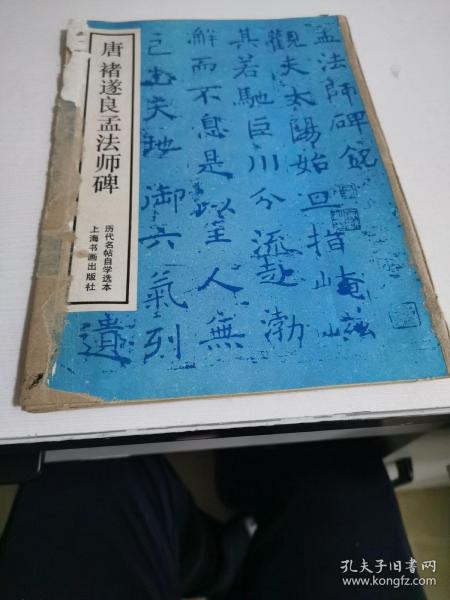 唐 褚遂良孟法师碑
历代名帖自学选本
上海书画出版社
孟法師碑銘
觀夫太陽始旦指崦嵫
其若馳巨川分流赴渤
澥而不息是以至人無
己出天地御六氣列
遺
孔夫子旧书网
www.kongfz.com